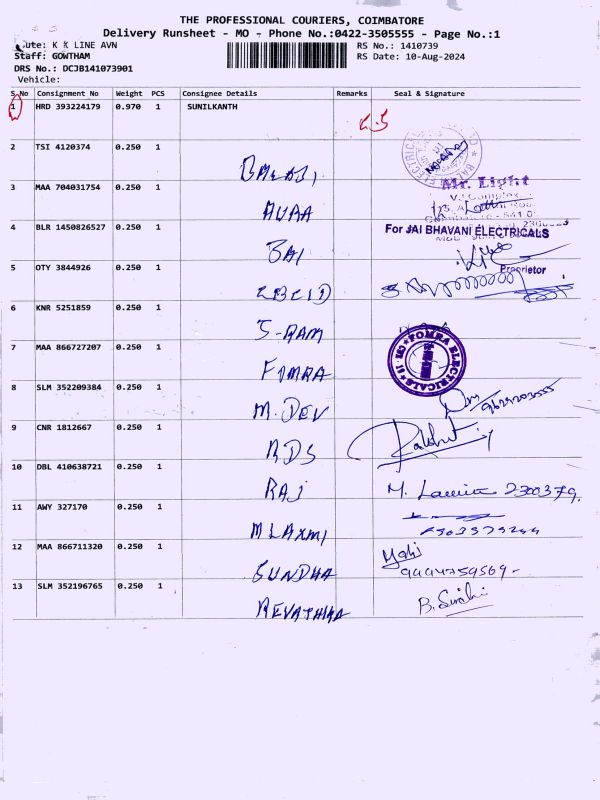 THE PROFESSIONAL COURIERS, COIMBATORE
Delivery Runsheet - MO - Phone No.:0422-3505555 - Page No.:1
ute: K K LINE AVN
RS No.: 1410739
Staff: GOWTHAM
RS Date: 10-Aug-2024
DRS No.: DCJB141073901
Vehicle:
S.No Consignment No Weight PCS Consignee Details Remarks Seal & Signature
1 HRD 393224179 0.970 1 SUNILKANTH
2 TSI 4120374 0.250 1
BALAJI
Mr. Light
3 MAA 704031754 0.250 1
AVAA
4 BLR 1450826527 0.250 1
For JAI BHAVANI ELECTRICALS
BAI
Proprietor
5 OTY 3844926 0.250 1
6 KNR 5251859 0.250 1
S-RAM
POMRA ELECTRICALS
7 MAA 866727207 0.250 1
FOMRA
8 SLM 352209384 0.250 1
M.DEV
9 CNR 1812667 0.250 1
RDS
10 DBL 410638721 0.250 1
RAJ
2300379
11 AWY 327170 0.250 1
M LAXMI
12 MAA 866711320 0.250 1
SUNDHA
9444759569
13 SLM 352196765 0.250 1
REVATHIKA